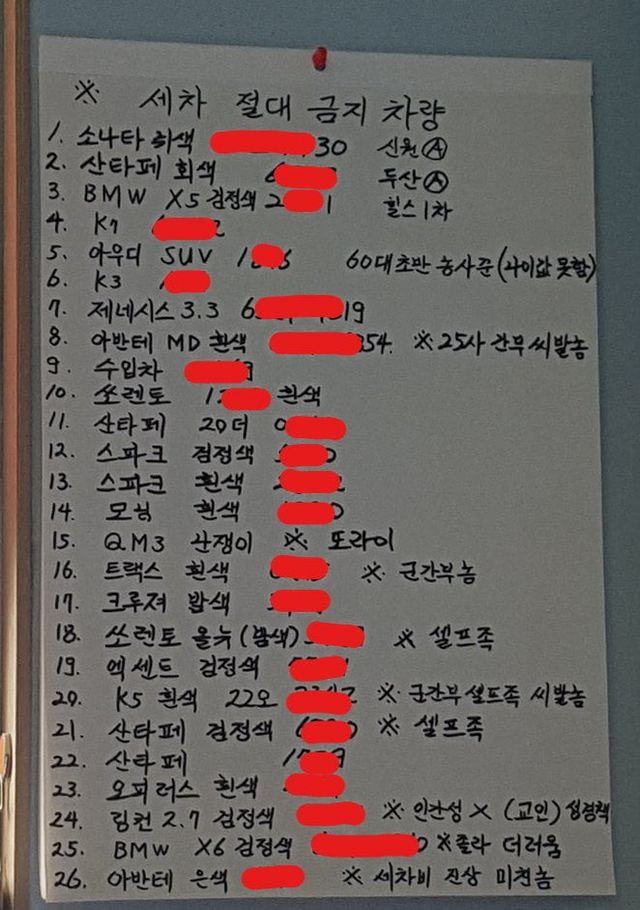 ※ 세차 절대 금지 차량
1. 소나타 30 신원Ⓐ
2. 산타페 회색 두산Ⓐ
3. BMW X5 검정색 2 1 힐스1차
4. K7
5. 아우디 SUV 1 6 60대초반 농사꾼 (나이값 못함)
6. K3
7. 제네시스 3.3 6 19
8. 아반테 MD 흰색 354. ※25사 간부 씨발놈
9. 수입차
10. 쏘렌토 12 흰색
11. 산타페 20더 0
12. 스파크 검정색 0
13. 스파크 흰색 2
14. 모닝 흰색 0
15. QM3 난쟁이 ※ 또라이
16. 트랙스 흰색 ※ 군간부놈
17. 크루져 밤색
18. 쏘렌토 올뉴(밤색) ※ 셀프족
19. 엑센트 검정색
20. K5 흰색 22오 ※ 군간부 셀프족 씨발놈
21. 산타페 검정색 6 0 ※ 셀프족
22. 산타페 1 9
23. 오피러스 흰색
24. 링컨 2.7 검정색 ※ 인간성 X (교인) 성경책
25. BMW X6 검정색 0 ※졸라 더러움
26. 아반테 은색 ※ 세차비 진상 미친놈